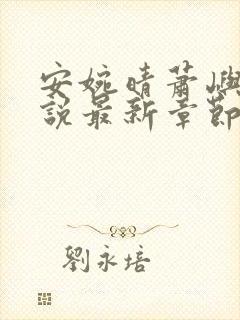 安婉晴蕭嶼
說最新章節
劉永培